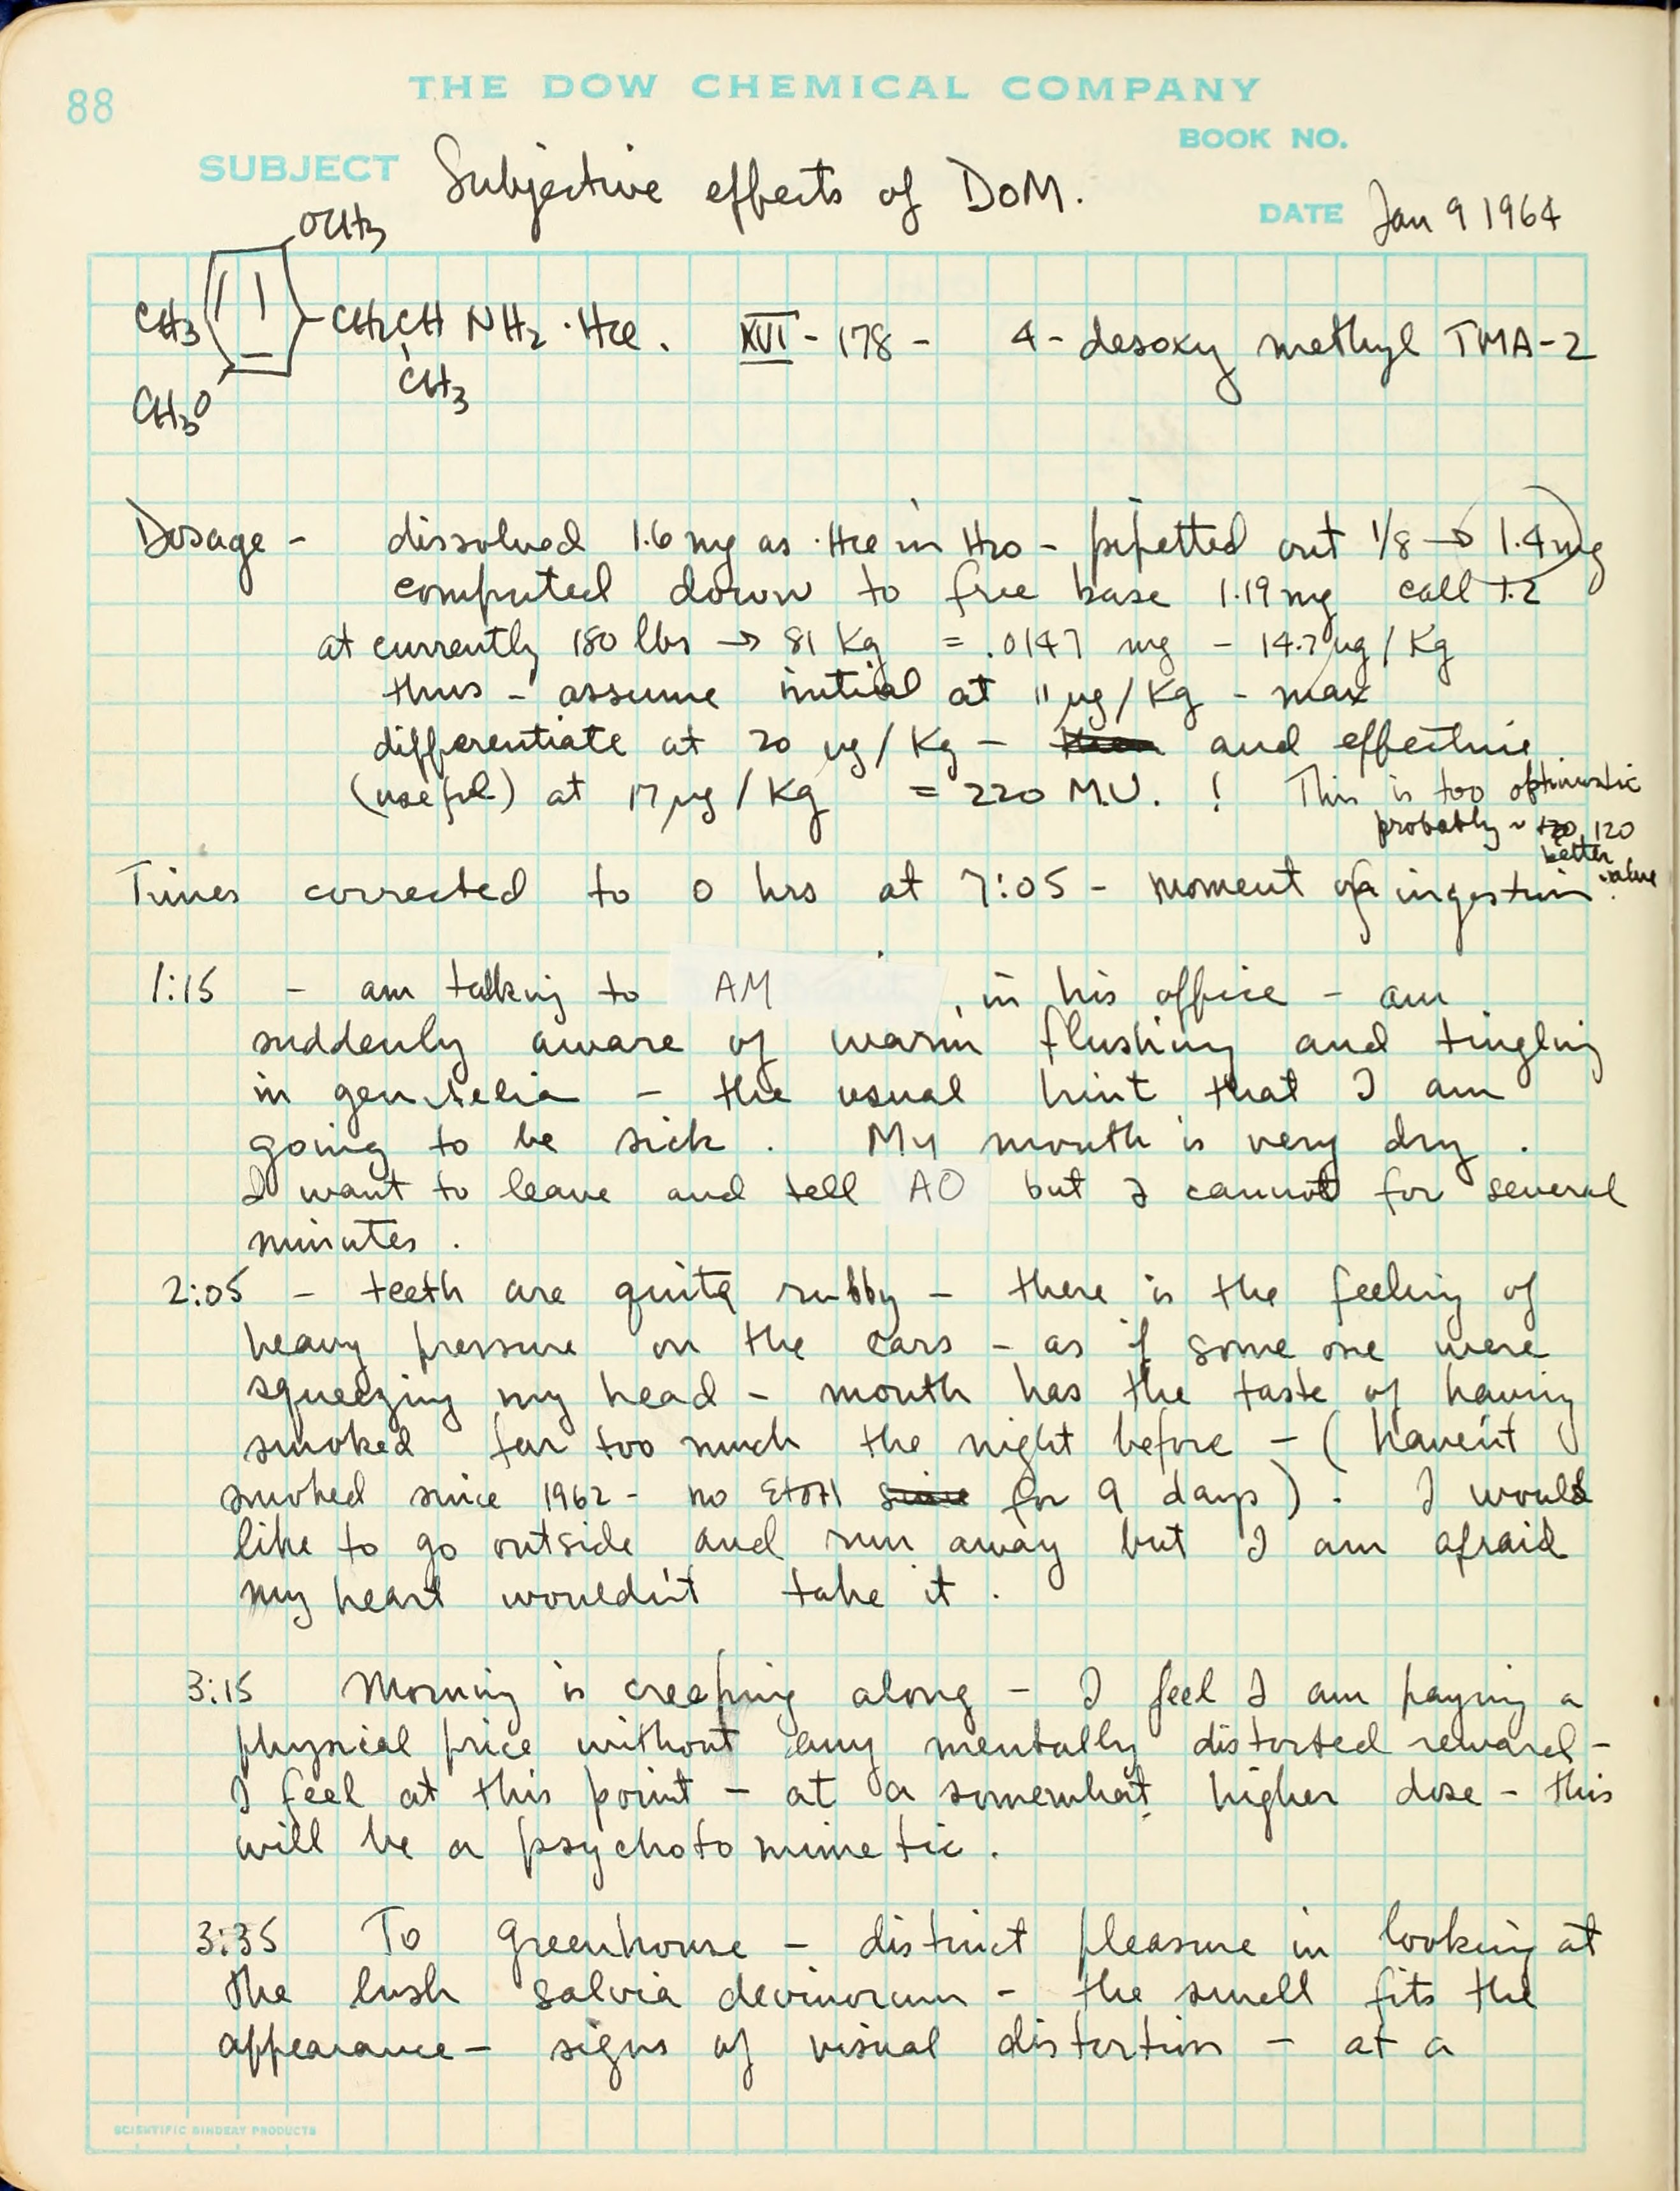 88
THE DOW CHEMICAL COMPANY
BOOK NO.
SUBJECT Subjective effects of DOM.
DATE Jan 9 1964
OCH3
CH3 CH2CH NH2 · HCl. XVI - 178 - 4-desoxy methyl TMA-2
CH3
CH3O
Dosage - dissolved 1.6 mg as ·HCl in H2O - pipetted out 1/8 → 1.4 mg
computed down to free base 1.19 mg call 1.2
at currently 180 lbs → 81 Kg = .0147 mg - 14.7 µg/Kg
thus - assume initial at 11 µg/Kg - max
differentiate at 20 µg/Kg - and effective
(useful) at 17 µg/Kg = 220 M.U. ! This is too optimistic
probably ~ 120
better
value
Times corrected to 0 hrs at 7:05 - moment of ingestion.
1:15 - am talking to AM , in his office - am
suddenly aware of warm flushing and tingling
in genitelia - the usual hint that I am
going to be sick. My mouth is very dry.
I want to leave and tell AO but I cannot for several
minutes.
2:05 - teeth are quite rubby - there is the feeling of
heavy pressure on the ears - as if some one were
squeezing my head - mouth has the taste of having
smoked far too much the night before - (haven't
smoked since 1962 - no EtOH since for 9 days). I would
like to go outside and run away but I am afraid
my heart wouldn't take it.
3:15 Morning is creeping along - I feel I am paying a
physical price without any mentally distorted reward -
I feel at this point - at a somewhat higher dose - this
will be a psychotomimetic.
3:35 To greenhouse - distinct pleasure in looking at
the lush salvia devinorum - the smell fits the
appearance - signs of visual distortion - at a
SCIENTIFIC BINDERY PRODUCTS